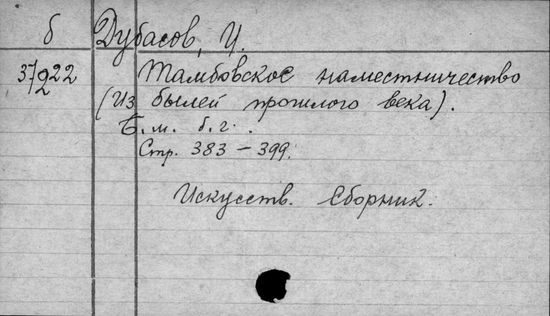 б Дубасов, И.
37922 Тамбовское наместничество
2 (Из былей прошлого века).
Б. м. б. г.
Стр. 383 – 399.
Искусств. Сборник.